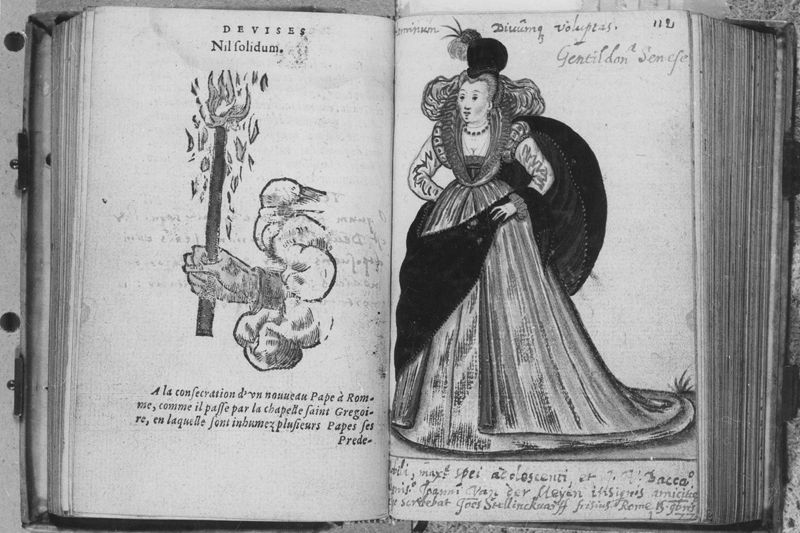 DEVISES
Nil solidum.
A la consecration d'vn nouueau Pape à Rom-
me, comme il passe par la chapelle saint Gregoi-
re, en laquelle sont inhumez plusieurs Papes ses
Prede-
Diuūmq voluptas. 112
Gentildonª Senese
spei adolescenti, et J. V. Baccaº
Joanni Van der Meyen insignis amicitiæ
scribebat Joēs Stellinckwerff frisius Rome